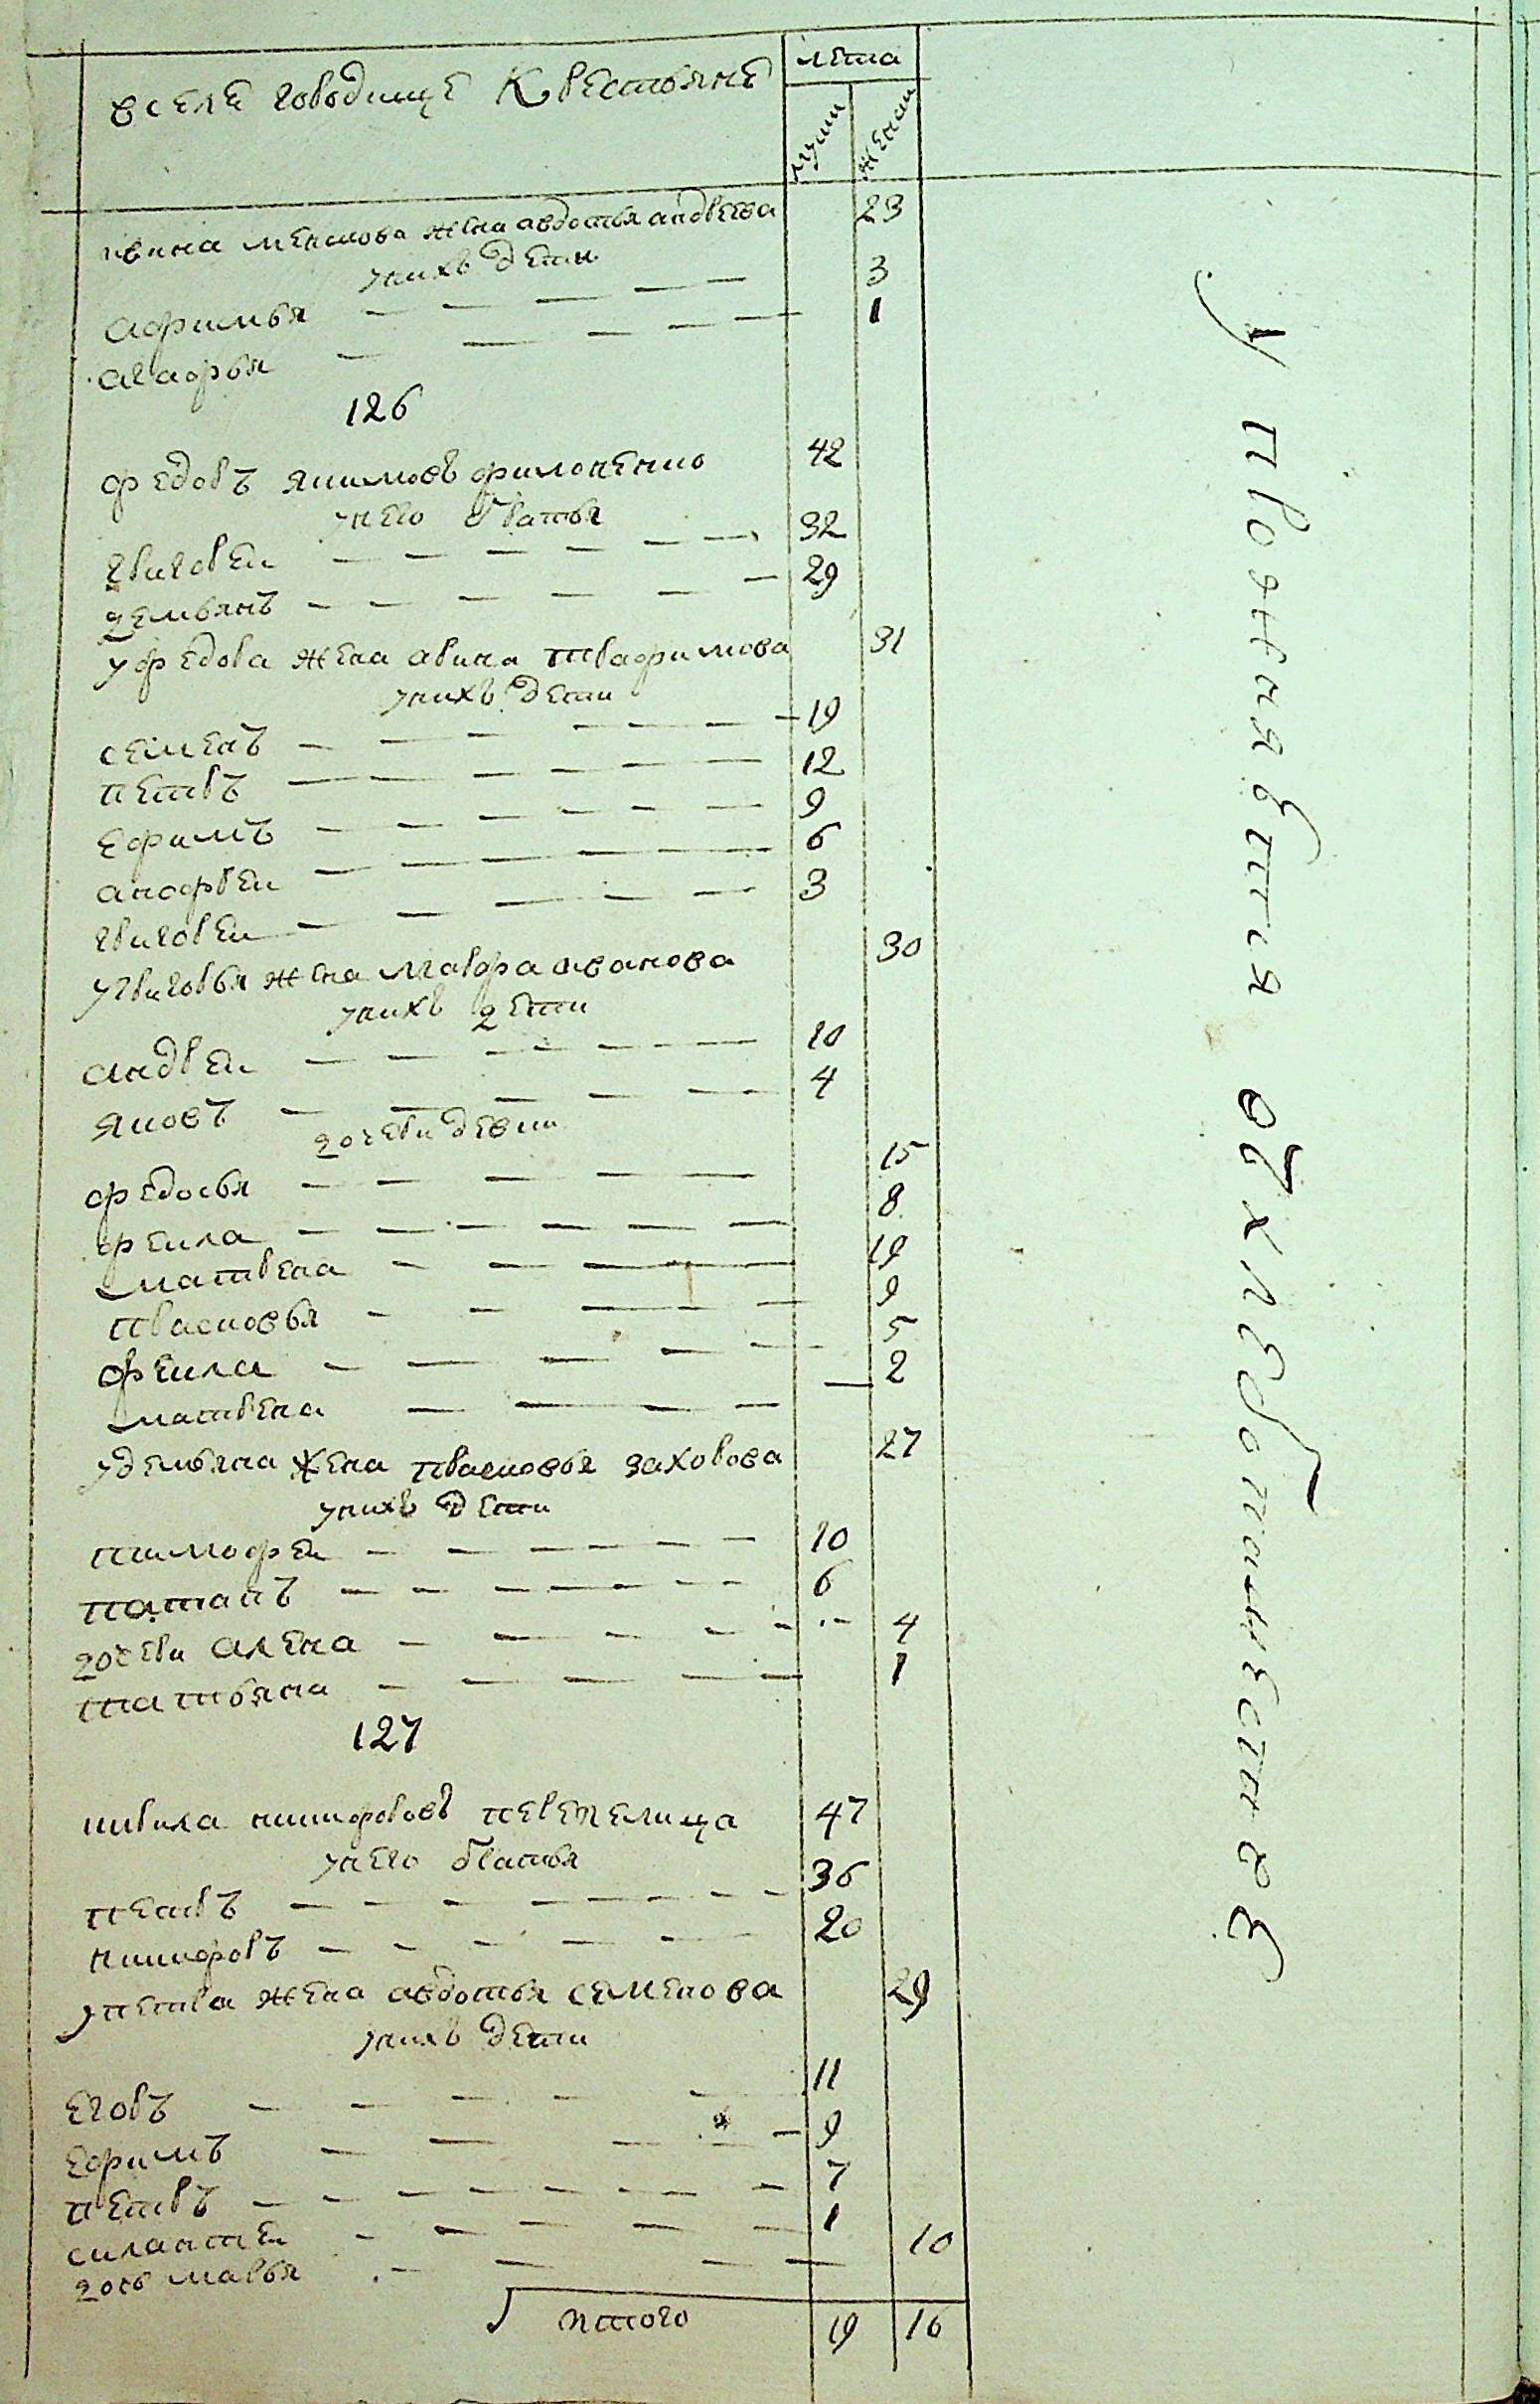 в селе городище Крестьяне
лета
мужи
женск
ивана менкова жена авдотья андреева 23
у нихъ дети
афимья 3
агафья 1
126
федоръ якимовъ филоненко 42
у него братья
григореи 32
демьянъ 29
у федора жена арина трафимова 31
у нихъ дети
семенъ 19
петръ 12
ефимъ 9
анофреи 6
григореи 3
у григорья жена мавра иванова 30
у нихъ дети
андреи 10
яковъ 4
дочери девки
федосья 15
фекла 8
матрена 19
прасковья 9
фекла 5
матрена 2
у демьяна жена прасковья захорова 27
у нихъ дети
тимофеи 10
потапъ 6
дочери алена 4
татьяна 1
127
кирила никифоровъ перепелица 47
у него братья
петръ 36
никифоръ 20
у петра жена авдотья семенова 29
у нихъ дети
егоръ 11
ефимъ 9
петръ 7
силантеи 1
дочь марья 10
итого 19 16
упрожняется охлебопашестве